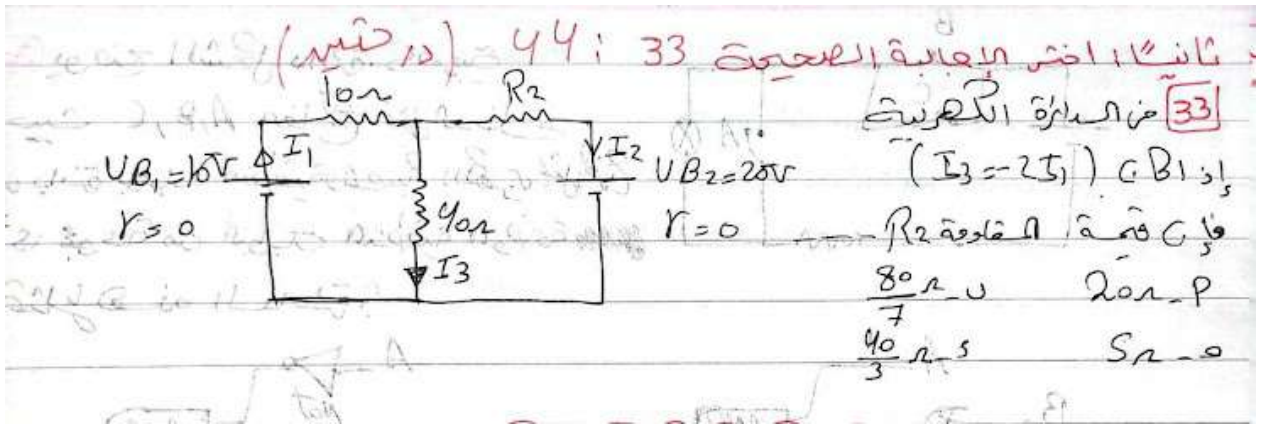 ثانيًا: اختر الإجابة الصحيحة 33 : 44 (درجتين)
33 من الدائرة الكهربية
إذا كان (I3 = -2I1)
فإن قيمة المقاومة R2
أ- 20Ω ب- 80/7 Ω
ج- 5Ω د- 40/3 Ω
10Ω R2
I1 I2
VB1=10V VB2=20V
r=0 40Ω r=0
I3